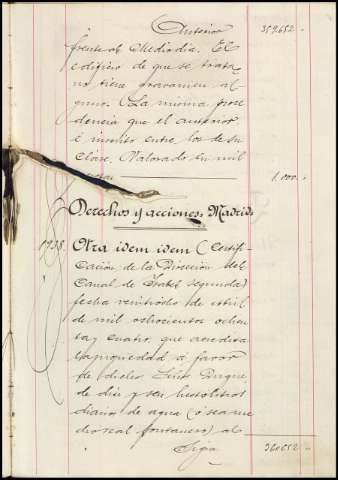 Anterior 359.652
frente al Mediodía. El
edificio de que se trata
no tiene gravamen al-
guno. La misma proce-
dencia que el anterior
é inscrito entre los de su
clase. Valorado en mil
1.000.
Derechos y acciones. Madrid.
1938. Otra idem idem (Certifi-
cación de la Dirección del
Canal de Isabel segunda)
fecha veintiocho de abril
de mil ochocientos ochen-
ta y cuatro, que acredita
la propiedad á favor
de dicho Señor Duque
de diez y seis hectolitros
diarios de agua (ó sea me-
dio real fontanero) al
Sigue 360.652